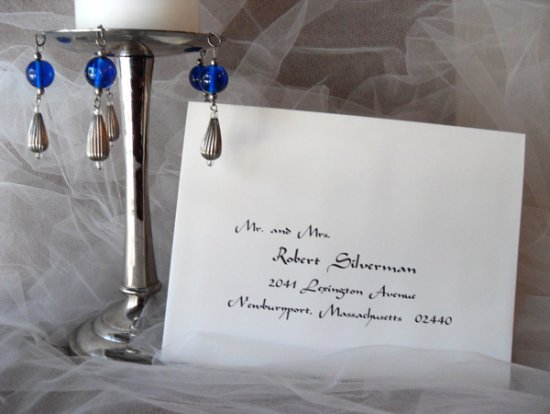 Mr. and Mrs.
Robert Silverman
2041 Lexington Avenue
Newburyport, Massachusetts 02440